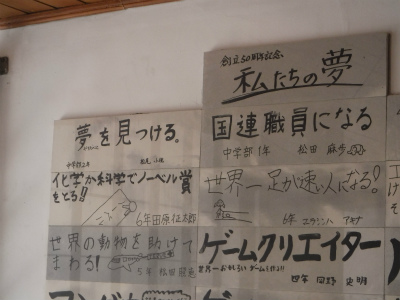 創立50周年記念
私たちの夢
夢を見つける。
国連職員になる
中学部1年 松田 麻歩
化学か科学でノーベル賞
をとる!!
6年田原征太郎
世界一足が速い人になる?
6年 エクシント アキナ
世界の動物を助けて
まわる!
5年 松田
ゲームクリエイター
世界一おもしろいゲームを作る!!
四年 岡野 史明